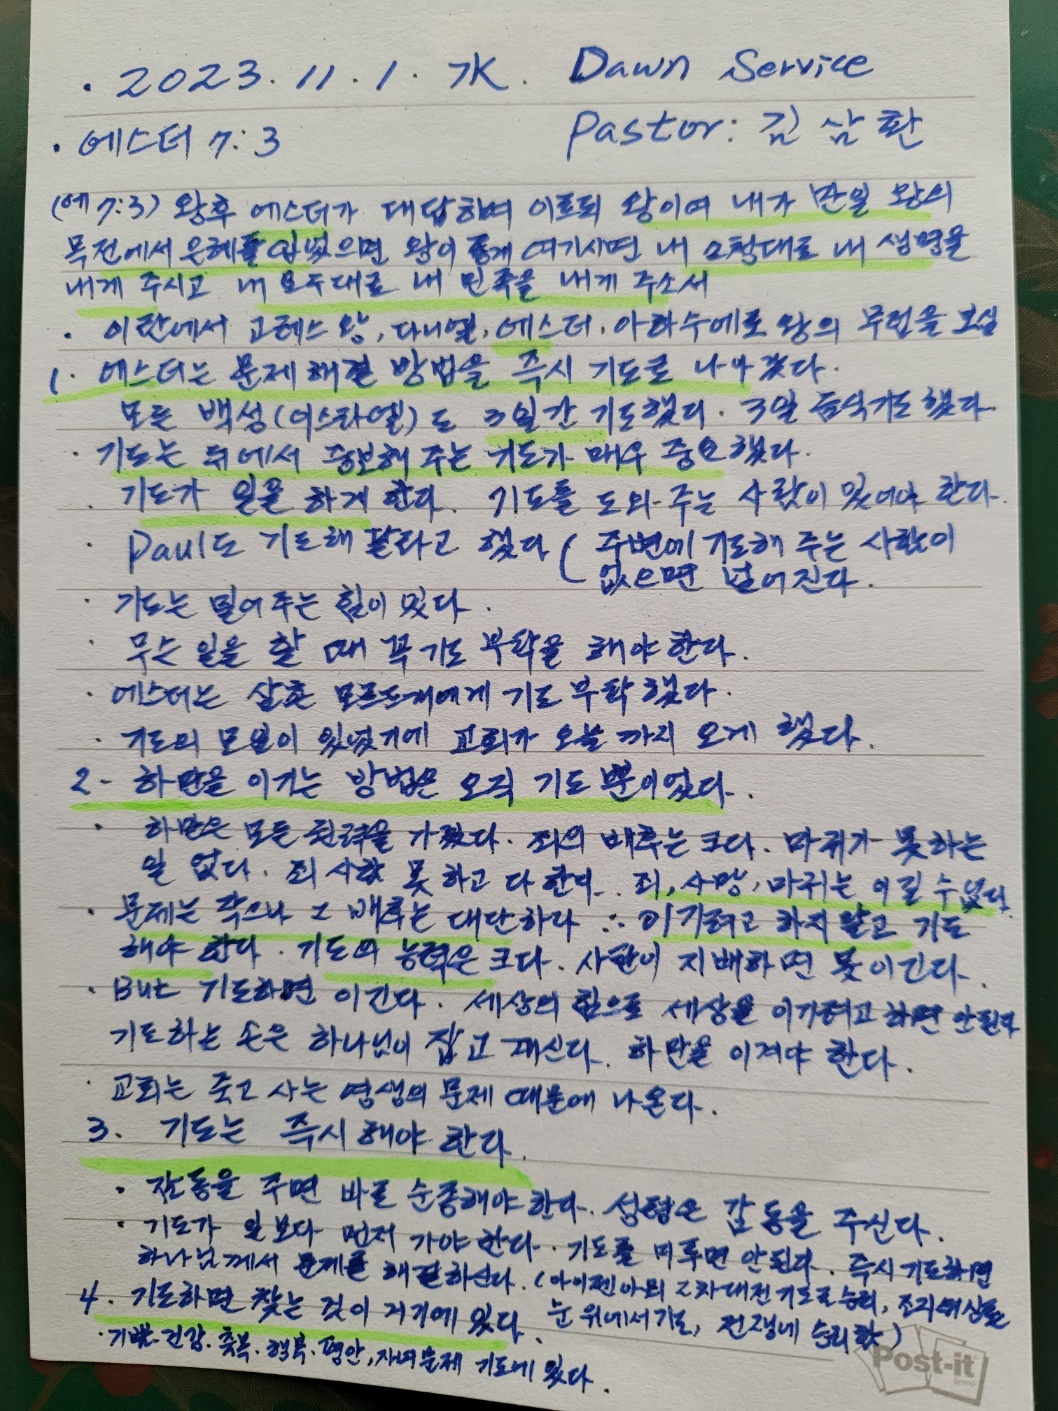 · 2023. 11. 1. 水. Dawn Service
· 에스더 7:3 Pastor: 김삼환
(에 7:3) 왕후 에스더가 대답하여 이르되 왕이여 내가 만일 왕의
목전에서 은혜를 입었으면 왕이 좋게 여기시면 내 소청대로 내 생명을
내게 주시고 내 요구대로 내 민족을 내게 주소서
· 이란에서 고레스 왕, 다니엘, 에스더, 아하수에로 왕의 무덤을 보심
1. 에스더는 문제해결 방법을 즉시 기도로 나아갔다.
모든 백성(이스라엘)도 3일간 기도했다. 3일 금식기도 했다.
· 기도는 뒤에서 중보해 주는 기도가 매우 중요했다.
· 기도가 일을 하게 한다. 기도를 도와 주는 사람이 있어야 한다.
· Paul도 기도해 달라고 했다 ( 주변에 기도해 주는 사람이
없으면 넘어진다.
· 기도는 밀어 주는 힘이 있다.
· 무슨 일을 할 때 꼭 기도 부탁을 해야 한다.
· 에스더는 삼촌 모르드개에게 기도 부탁 했다.
· 기도의 모임이 있었기에 교회가 오늘 까지 오게 했다.
2- 하만을 이기는 방법은 오직 기도 뿐이었다.
· 하만은 모든 권력을 가졌다. 죄의 배후는 크다. 마귀가 못하는
일 없다. 죄 사람 못 하고 다 한다. 죄, 사망, 마귀는 이길 수 없다.
· 문제는 작으나 그 배후는 대단하다 ∴ 이기려고 하지 말고 기도
해야 한다. 기도의 능력은 크다. 사탄이 지배하면 못이긴다.
· But 기도하면 이긴다. 세상의 힘으로 세상을 이기려고 하면 안된다
기도하는 손은 하나님이 잡고 계신다. 하만을 이겨야 한다.
· 교회는 죽고 사는 영생의 문제 때문에 나온다.
3. 기도는 즉시 해야 한다.
· 감동을 주면 바로 순종해야 한다. 성령은 감동을 주신다.
· 기도가 일보다 먼저 가야 한다. 기도를 미루면 안된다. 즉시 기도하면
하나님께서 문제를 해결하신다. (아이젠아워 2차대전 기도로 승리, 조지 워싱톤
4. 기도하면 찾는 것이 거기에 있다. 눈 위에서 기도, 전쟁에 승리함)
· 기쁨. 건강. 축복. 행복. 평안, 자녀문제 기도에 있다.
Post-it